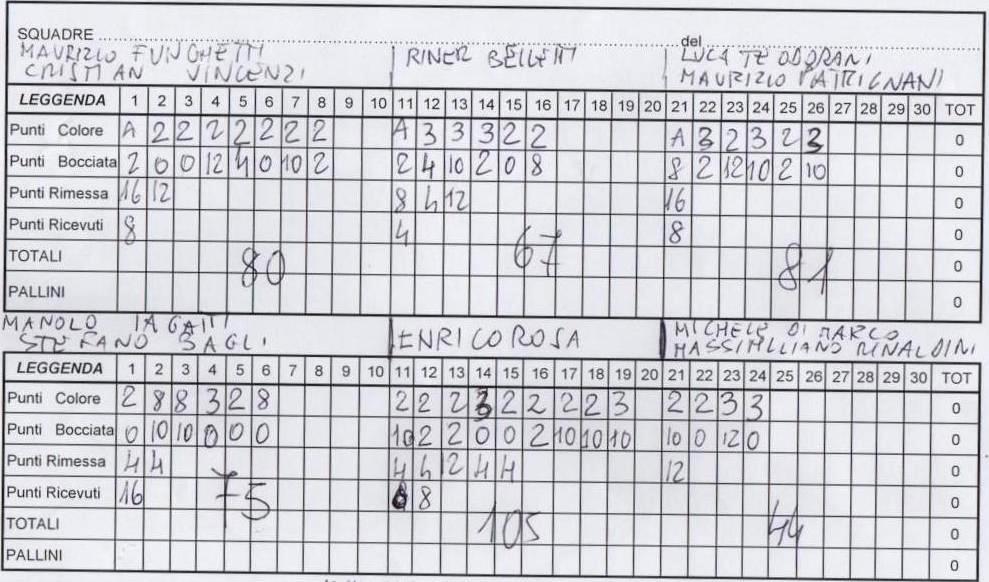 SQUADRE del
MAURIZIO FUNGHETTI RINER BELLETTI LUCA TEODORANI
CRISTIAN VINCENZI MAURIZIO PATRIGNANI
LEGGENDA 1 2 3 4 5 6 7 8 9 10 11 12 13 14 15 16 17 18 19 20 21 22 23 24 25 26 27 28 29 30 TOT
Punti Colore A 2 2 2 2 2 2 2 A 3 3 3 2 2 A 3 2 3 2 3 0
Punti Bocciata 2 0 0 12 4 0 10 2 2 4 10 2 0 8 8 2 12 10 2 10 0
Punti Rimessa 16 12 8 4 12 16 0
Punti Ricevuti 8 4 8 0
TOTALI 80 67 81 0
PALLINI 0
MANOLO IAGATTI ENRICO ROSA MICHELE DI MARCO
STEFANO BAGLI MASSIMILIANO RINALDINI
LEGGENDA 1 2 3 4 5 6 7 8 9 10 11 12 13 14 15 16 17 18 19 20 21 22 23 24 25 26 27 28 29 30 TOT
Punti Colore 2 8 8 3 2 8 2 2 2 3 2 2 2 2 3 2 2 3 3 0
Punti Bocciata 0 10 10 0 0 0 10 2 2 0 0 2 10 10 10 10 0 12 0 0
Punti Rimessa 4 4 4 4 12 4 4 12 0
Punti Ricevuti 16 8 0
75 105 44
TOTALI 0
PALLINI 0